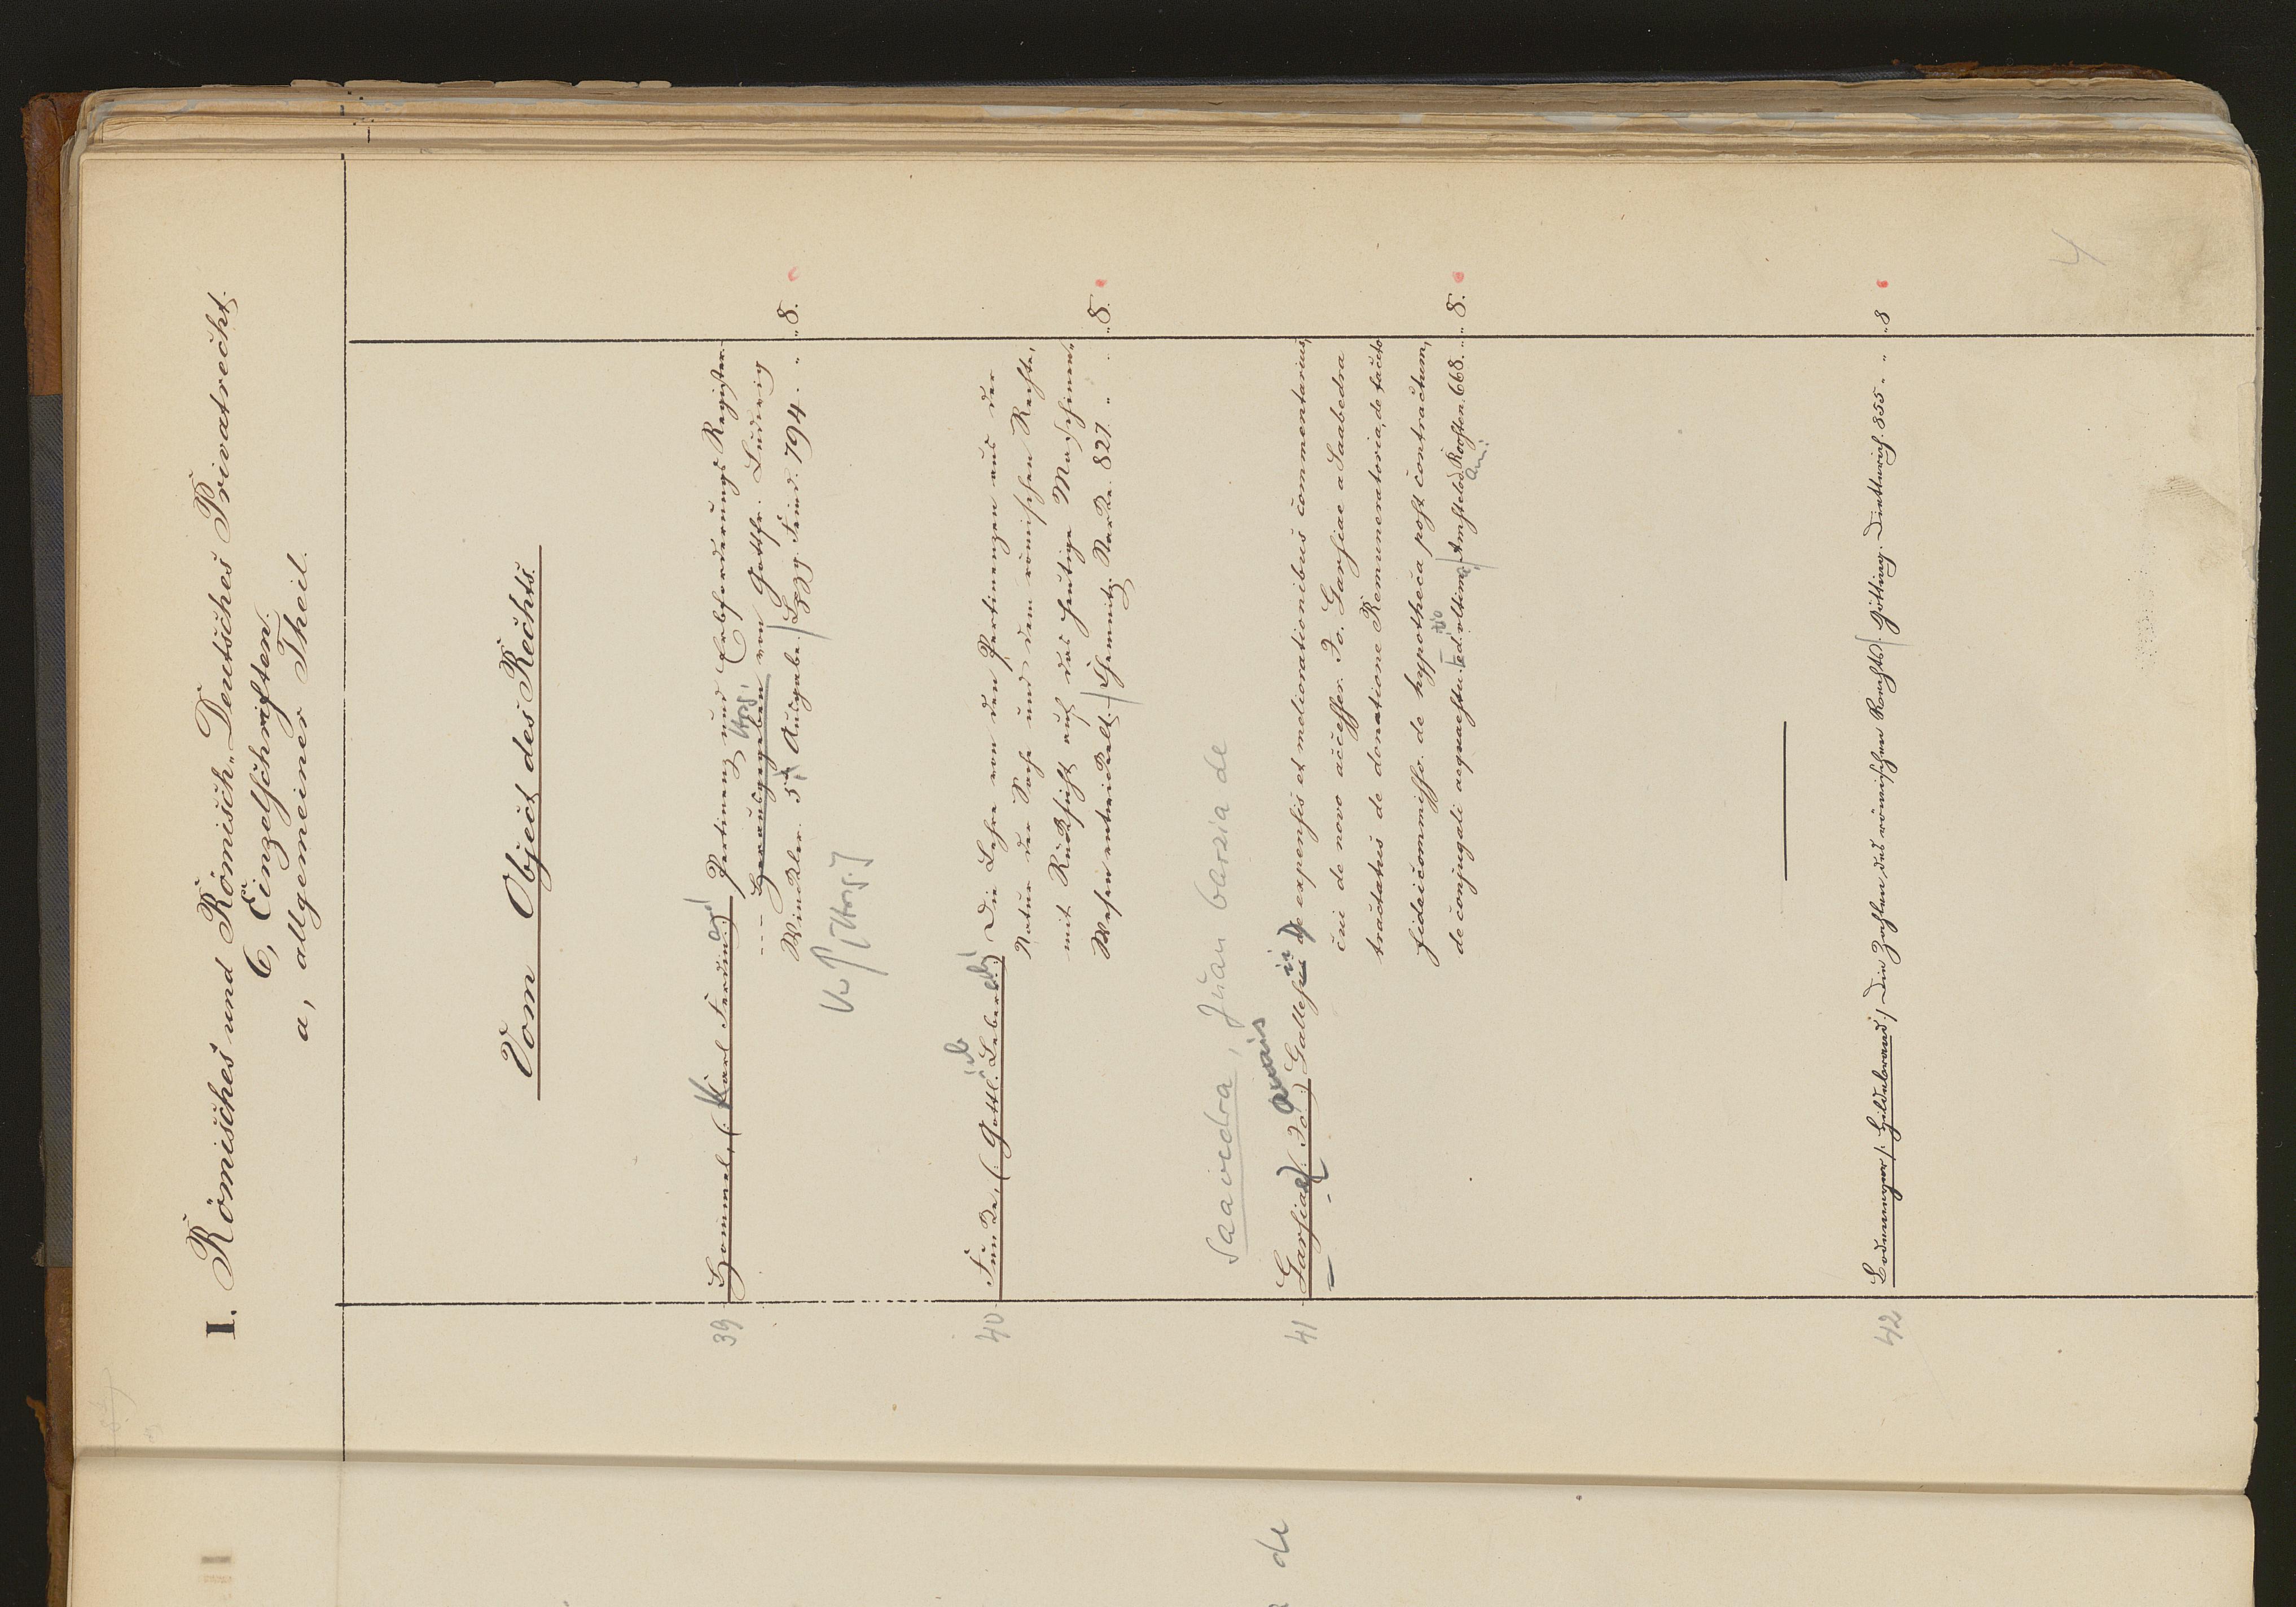 I. Römisches und Römisch-Deutsches Privatrecht.
C, Einzelschriften.
a, allgemeiner Theil.
Vom Object des Rechts.
39 Hommel, (: Karl Ferdin. :) Pertinenz und Erbsonderungs Register
--- Herausgegeben von Gottfr. Ludwig
Winckler. 5te Ausgabe. Lpzg. Feind. 794. " " 8.
K. F. [Hrsg.]
40 Funke, (: Gottl. Leber. :) Die Lehre von den Pertinenzen aus der
Natur der Sache und dem römischen Rechte,
mit Rücksicht auf das heutige Maschinen-
Wesen entwickelt. Chemnitz. Starke. 827. " " 8.
Saavedra, Juan Garzia de
41 Garsiae (: Jo. :) Gallesii de expensis et meliorationibus commentarius,
cui de novo accesser. Jo. Garsiae a Saabedra
tractatus de donatione Remuneratoria, de tacito
fideicommisso. de hypotheca post contractum,
de conjugali acquaestu. ed. ultima. Amstelod. 668. " 8.
42 Bodemeyer (: Hildebrand :) Die Zahlen des römischen Rechts. Götting. Dietterich. 855. " " 8
4
de